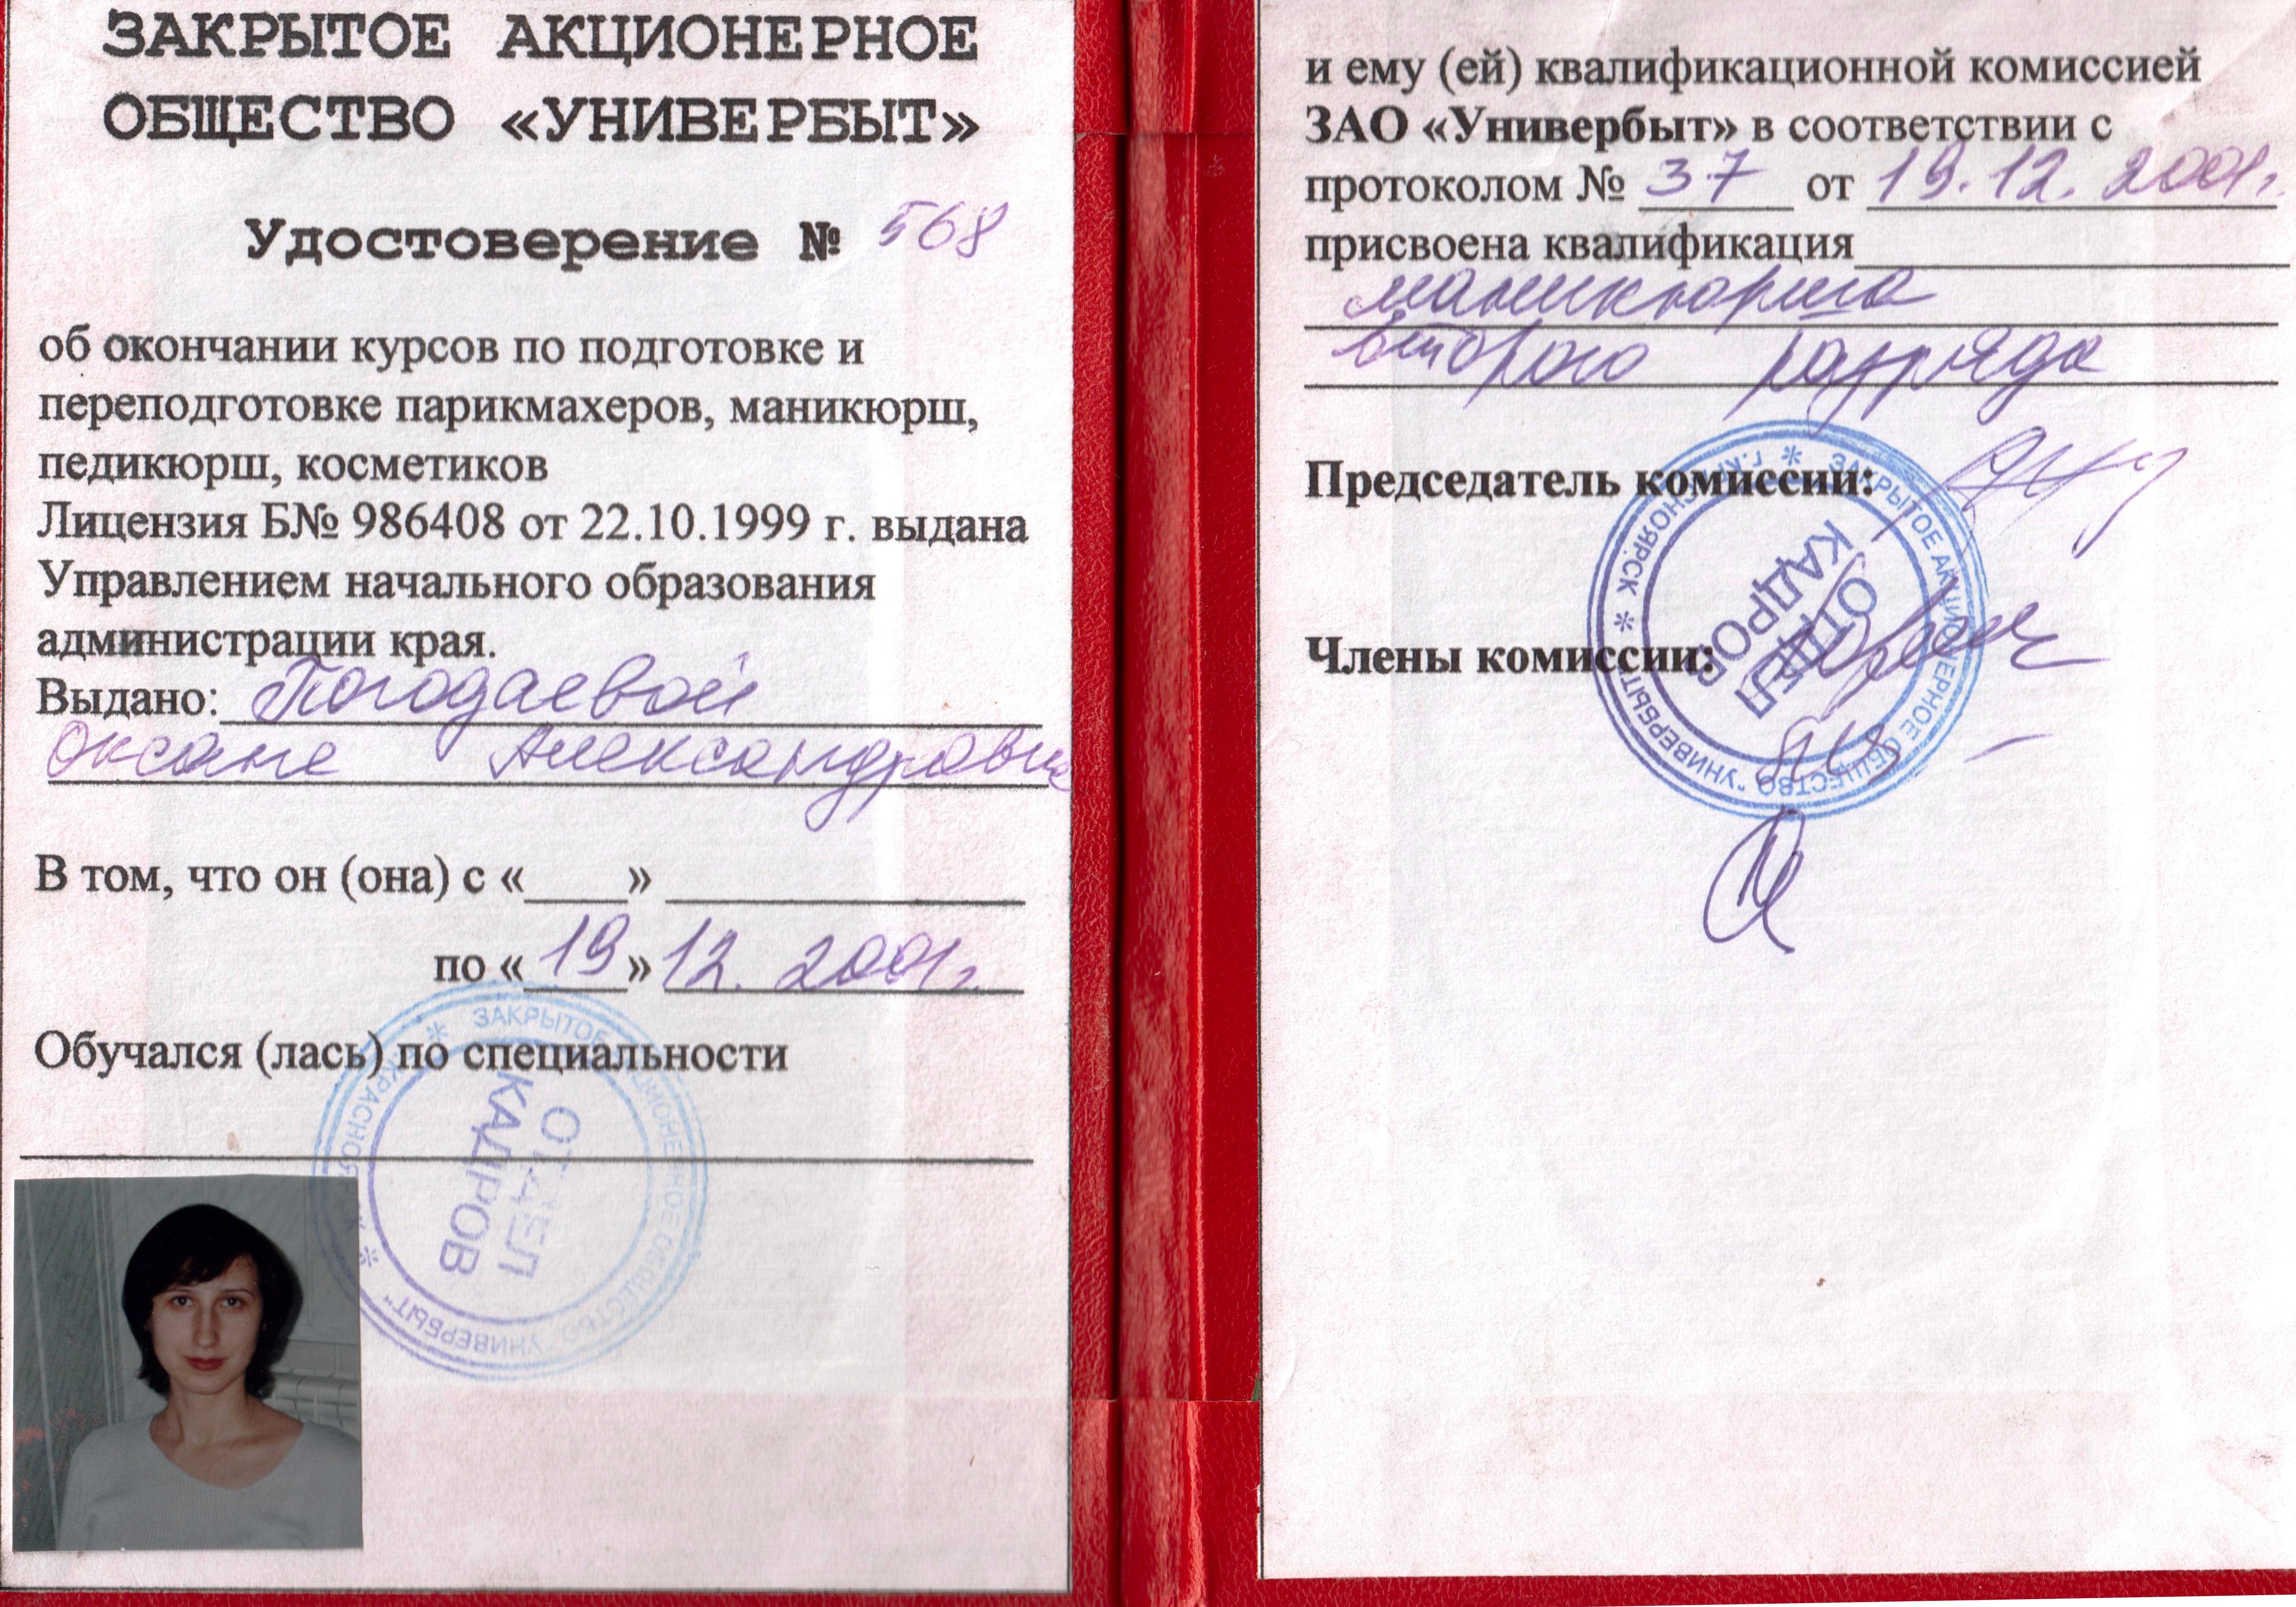 ЗАКРЫТОЕ АКЦИОНЕРНОЕ
ОБЩЕСТВО «УНИВЕРБЫТ»
Удостоверение № 568
об окончании курсов по подготовке и
переподготовке парикмахеров, маникюрш,
педикюрш, косметиков
Лицензия Б№ 986408 от 22.10.1999 г. выдана
Управлением начального образования
администрации края.
Выдано: Погодаевой
Оксане Александровне
В том, что он (она) с «____» ____
по «19» 12. 2001г.
Обучался (лась) по специальности
* ЗАКРЫТОЕ АКЦИОНЕРНОЕ ОБЩЕСТВО "УНИВЕРБЫТ" *
ОТДЕЛ
КАДРОВ
и ему (ей) квалификационной комиссией
ЗАО «Универбыт» в соответствии с
протоколом № 37 от 19.12.2001г.
присвоена квалификация
маникюрша
второго разряда
Председатель комиссии:
Члены комиссии:
* ЗАКРЫТОЕ АКЦИОНЕРНОЕ ОБЩЕСТВО "УНИВЕРБЫТ" * г.КРАСНОЯРСК
ОТДЕЛ
КАДРОВ